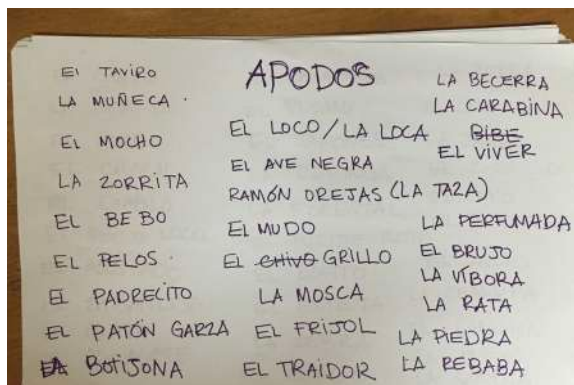 APODOS
El TAVIRO
LA MUÑECA
El MOCHO
LA ZORRITA
EL BEBO
EL PELOS
El PADRECITO
EL PATÓN GARZA
LA BOTIJONA
EL LOCO / LA LOCA
El AVE NEGRA
RAMÓN OREJAS (LA TAZA)
El MUDO
EL CHIVO GRILLO
LA MOSCA
EL FRIJOL
EL TRAIDOR
LA BECERRA
LA CARABINA
BIBE
EL VIVER
LA PERFUMADA
EL BRUJO
LA VÍBORA
LA RATA
LA PIEDRA
LA REBABA